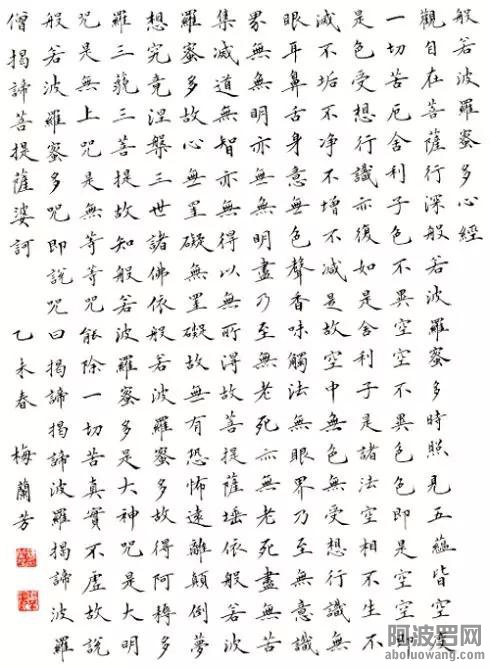 般若波羅蜜多心經
觀自在菩薩行深般若波羅蜜多時照見五蘊皆空度
一切苦厄舍利子色不異空空不異色色即是空空即
是色受想行識亦復如是舍利子是諸法空相不生不
滅不垢不净不增不減是故空中無色無受想行識無
眼耳鼻舌身意無色聲香味觸法無眼界乃至無意識
界無無明亦無無明盡乃至無老死亦無老死盡無苦
集滅道無智亦無得以無所得故菩提薩埵依般若波
羅蜜多故心無罣礙無罣礙故無有恐怖遠離顛倒夢
想究竟涅槃三世諸佛依般若波羅蜜多故得阿耨多
羅三藐三菩提故知般若波羅蜜多是大神咒是大明
咒是無上咒是無等等咒能除一切苦真實不虛故說
般若波羅蜜多咒即說咒曰揭諦揭諦波羅揭諦波羅
僧揭諦菩提薩婆訶 乙未春 梅蘭芳
阿波罗网
aboluowang.com